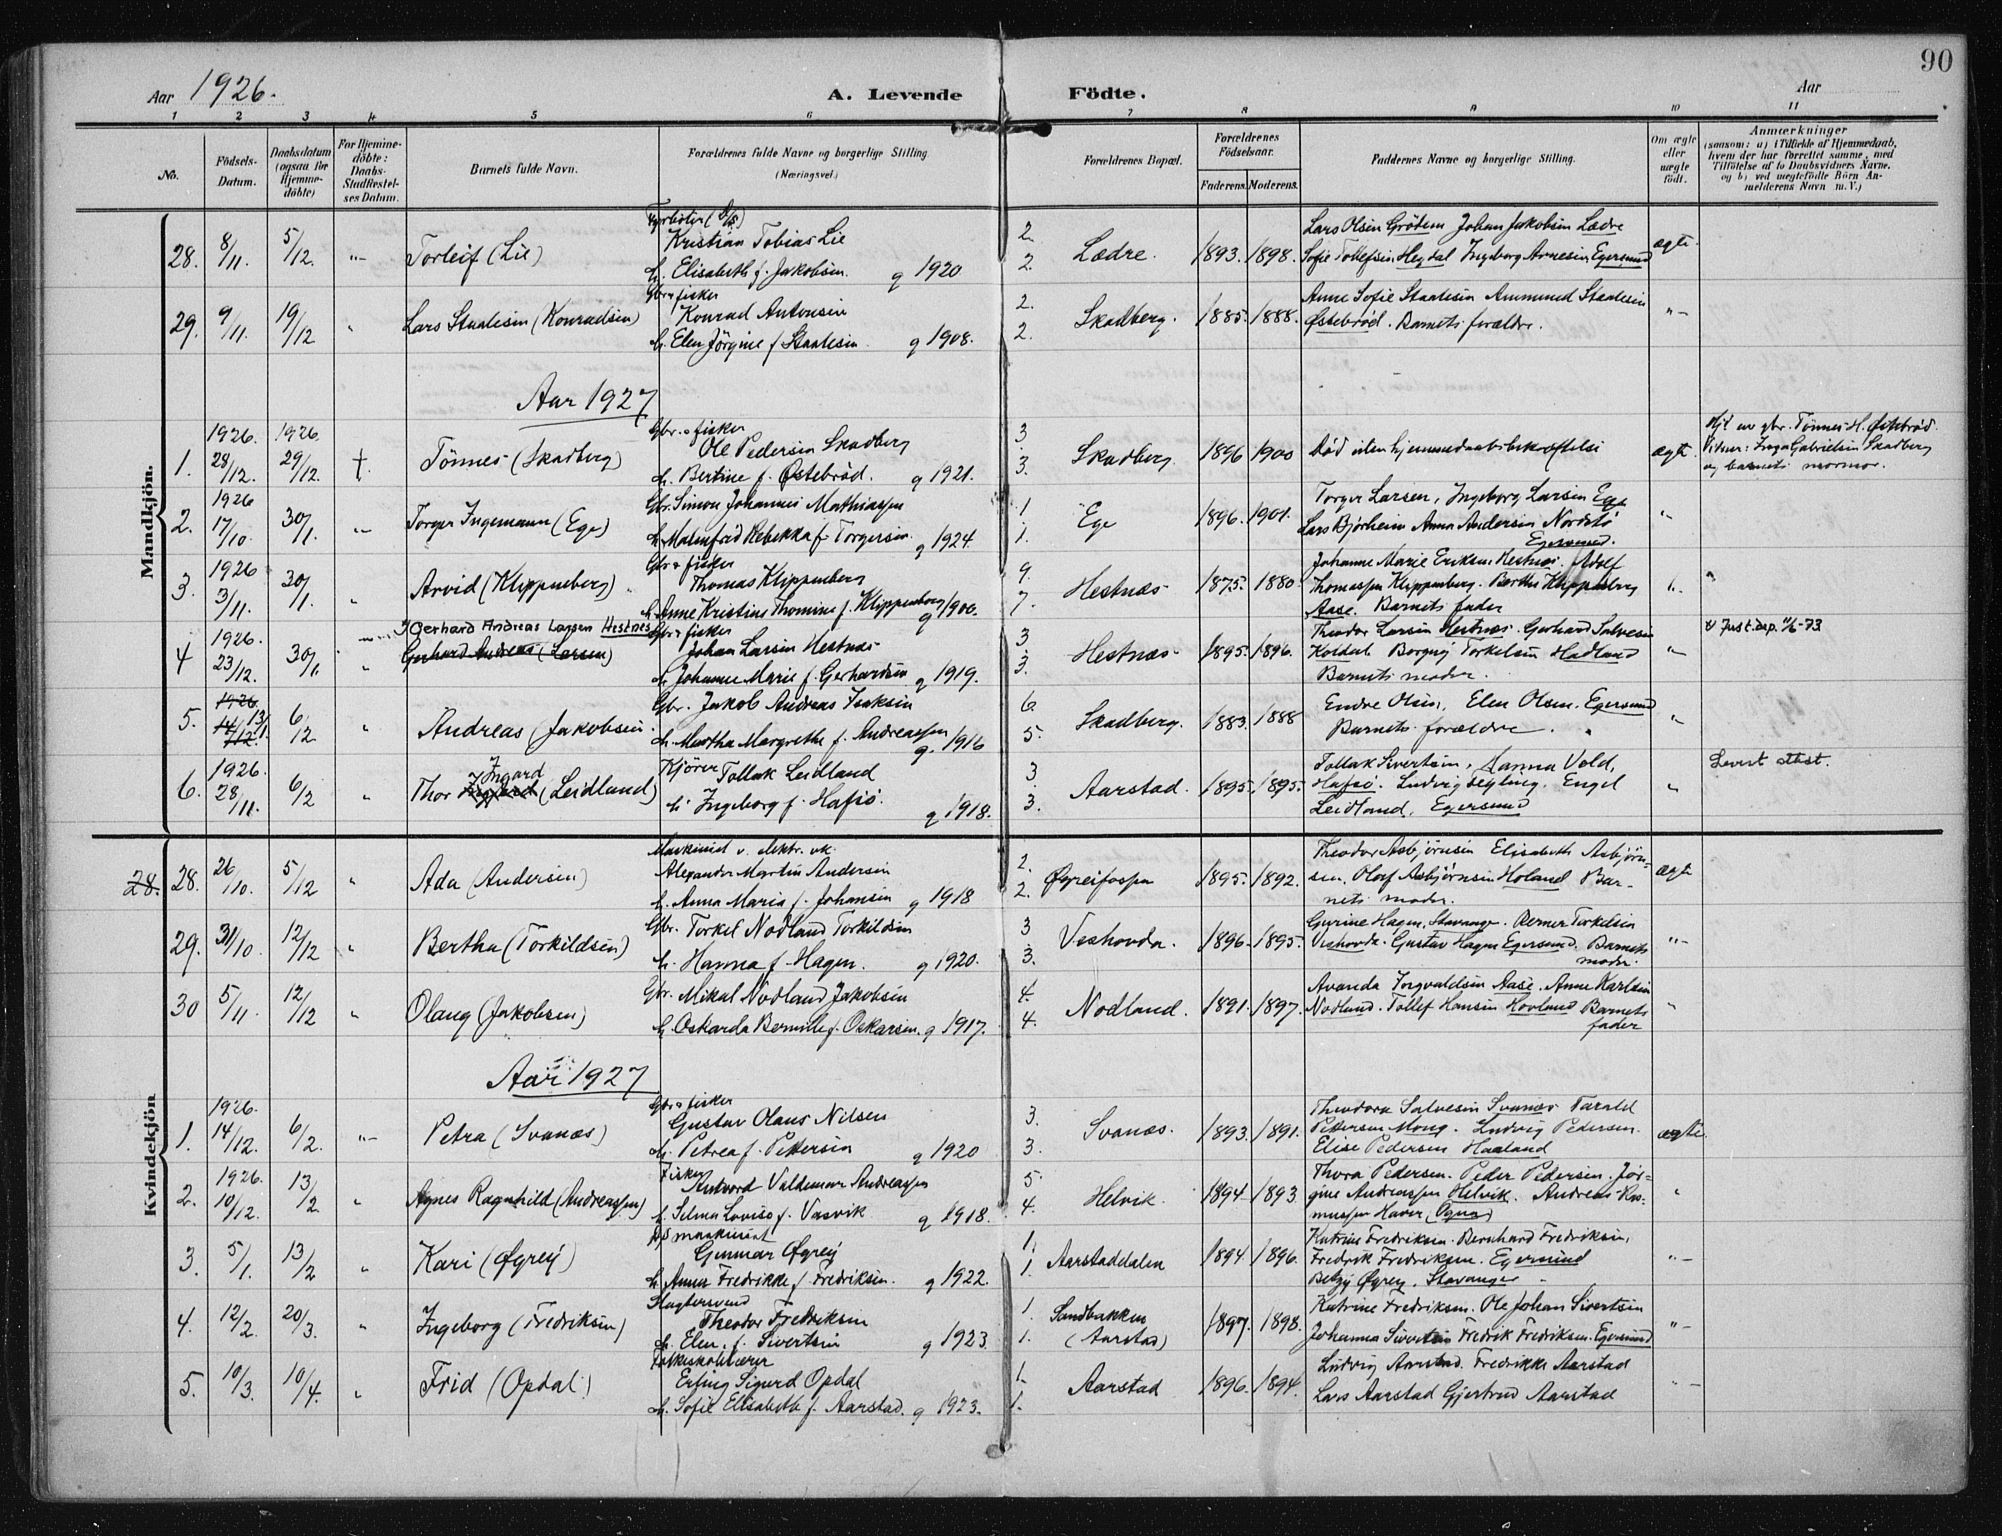 90
Aar 1926.
A. Levende Födte.
Aar
1 2 3 4 5 6 7 8 9 10 11
No.
Födsels-Datum.
Daabsdatum (ogsaa for Hjemme-döbte)
For Hjemme-döbte: Daabs-Stadfæstel-ses Datum.
Barnets fulde Navn.
Forældrenes fulde Navne og borgerlige Stilling (Næringsvei.)
Forældrenes Bopæl.
Forældrenes Födselsaar.
Faderens. Moderens.
Faddernes Navne og borgerlige Stilling.
Om ægte eller uægte födt.
Anmærkninger
(saasom: a) i Tilfælde af Hjemmedaab, hvem der har forrettet samme, med Tilföielse af to Daabsvidners Navne, og b) ved uægtefödte Börn An-melderens Navn m. V.)
Mandkjön.
28. 8/11. 5/12. "- Torleif (Lie) Kristian Tobias Lie h. Elisabeth f. Jakobsen. g 1920 2. 2. Lædre. 1893. 1898. Lars Olsen Grötem Johan Jakobsen Lædre
Sofie Tollefsen Hegdal Ingeborg Arnesen Egersund ægte
29. 9/11. 19/12 " Lars Staalesen (Konradsen) Gbr. & fisker Konrad Antonsen h. Elen Jörgine f Staalesen. g 1908. 2. 2. Skadberg. 1885. 1888. Anne Sofie Staalesen Ammund Staalesen
Østebrød. Barnets forældre. "-
Aar 1927
1. 1926. 28/12. 1926. 29/12. †. Tönnes (Skadberg) Gbr. & fisker Ole Pedersen Skadberg h. Bertine f. Østebrød. g 1921. 3. 3. Skadberg 1896 1900 Død uten hjemmedaabsbekræftelse ægte Hjd av gbr. Tönnes H. Østebrød.
Vidner: Inga Gabrielsen Skadberg
og barnets mormor.
2. 1926 17/10. 30/1. "- Torger Ingemann (Ege) Gbr. Simon Johannes Mathiassen h. Malmfrid Rebekka f Torgersen g 1924. 1 1. Ege 1896. 1901. Torger Larsen, Ingeborg Larsen Ege
Lars Bjørheim Anna Andersen Nordstö
Egersund. "
3. 1926 3/11. 30/1. " Arvid (Klippenberg) Gbr & fisker Thomas Klippenberg h. Anne Kristine Thomine f. Klippenberg g 1900. 9. 7. Hestnæs 1875. 1880. Johanne Marie Eriksen Hestnæs. Adolf
Thomassen Klippenberg. Barthe Klippenberg
Aase. Barnets fader ". "
4 1926. 23/12. 30/1. " Gerhard Andreas Larsen Hestnes
Gerhard Andreas (Larsen) Gbr & fisker Johan Larsen Hestnæs h. Johanne Marie f. Gerhardsen g 1919. 3. 3. Hestnæs 1895. 1896. Theodor Larsen Hestnæs. Gerhard Salvesen
Koldal Borgny Torkelsen Hadland
Barnets moder. "- Just.dep. 11/6-73
5. 1926. 14/12. 13/1. 6/2 " Andreas (Jakobsen. Gbr. Jakob Andreas Isaksen h. Martha Margrethe f. Andreassen g. 1916 6. 5. Skadberg. 1883. 1888 Endre Olsen, Elen Olsen. Egersund
Barnets forældre. "
6. 1926. 28/11. 6/2 " Thor Ingard (Leidland) Kjører Tollak Leidland h. Ingeborg f. Hafsø. g 1918. 3. 3. Aarstad. 1895. 1895. Tollak Sivertsen, Hanna Vold,
Hafsø. Ludvig Segling. Engel
Leidland, Egersund " Levert attest.
28. 28. 26/10. 5/12 " Ada (Andersen) Maskinist v. elektr. vk. Alexander Martin Andersen h. Anna Maria f. Johansen g 1918 2. 2. Øgreifossen 1895. 1892. Theodor Asbjørnsen Elisabeth Asbjørn-
sen. Olaf Asbjørnsen Holand Bar-
nets moder. ægte
29. 31/10. 12/12 " Bertha (Torkildsen) Gbr. Torkel Nodland Torkildsen h. Hanna f. Hagen. g 1920. 3 3. Veshovda. 1896. 1895. Gyrine Hagen, Stavanger. Reimer Torkelsen
Veshovda. Gustav Hagen Egersund. Barnets
moder. "-
30 5/11. 12/12 " Olaug (Jakobsen) Gbr. Mikal Nodland Jakobsen h. Oskarda Bernille f. Oskarsen. g 1917. 4. 4. Nodland. 1891. 1897. Avanda Torgvaldsen Aase. Anne Karlsen
Nodland. Tollef Hansen Hovland Barnets
fader "
Aar 1927
Kvindekjön
1. 1926. 14/12. 6/2. "- Petra (Svanæs) Gbr & fisker Gustav Olaus Nilsen h. Petrea f. Pettersen g 1920 3. 3. Svanæs. 1893. 1891. Theodora Salvesen Svanæs Tarald
Pettersen Mong. Ludvig Pedersen.
Elise Pedersen Haaland ægte.
2. 1926. 10/12. 13/2 " Agnes Ragnhild (Andreassen) Fisker Antvord Valdemar Andreassen h. Selma Lovise f. Vasvik g 1918. 5 4. Helvik. 1894. 1893. Thora Pedersen. Peder Pedersen. Jör-
gine Andreassen Helvik. Andreas Ras-
mussen Haver (Ogna) "
3. 5/1. 13/2 " Kari (Øgrey) D/S maskinist Gunnar Øgrey h. Anna Fredrikke f Fredriksen. g 1922. 1. 1 Aarstaddalen 1894 1896. Katrine Fredriksen. Bernhard Fredriksen,
Fredrik Fredriksen. Egersund
Betzy Øgrey, Stavanger "-
4. 12/2. 20/3. " Ingeborg (Fredriksen) Slagtersvend Theodor Fredriksen h. Elen f. Sivertsen g 1923. 1. 1. Sandbakken (Aarstad) 1897. 1898. Katrine Fredriksen. Ole Johan Sivertsen
Johanna Sivertsen Fredrik Fredriksen. Egersund "-
5. 10/3. 10/4. " Frid (Opdal) Folkeskolelærer Erling Sigurd Opdal h. Sofie Elisabeth f. Aarstad. g 1923. 1. 1. Aarstad 1896. 1894. Ludvig Aarstad. Fredrikke Aarstad
Lars Aarstad Gjertrud Aarstad "-